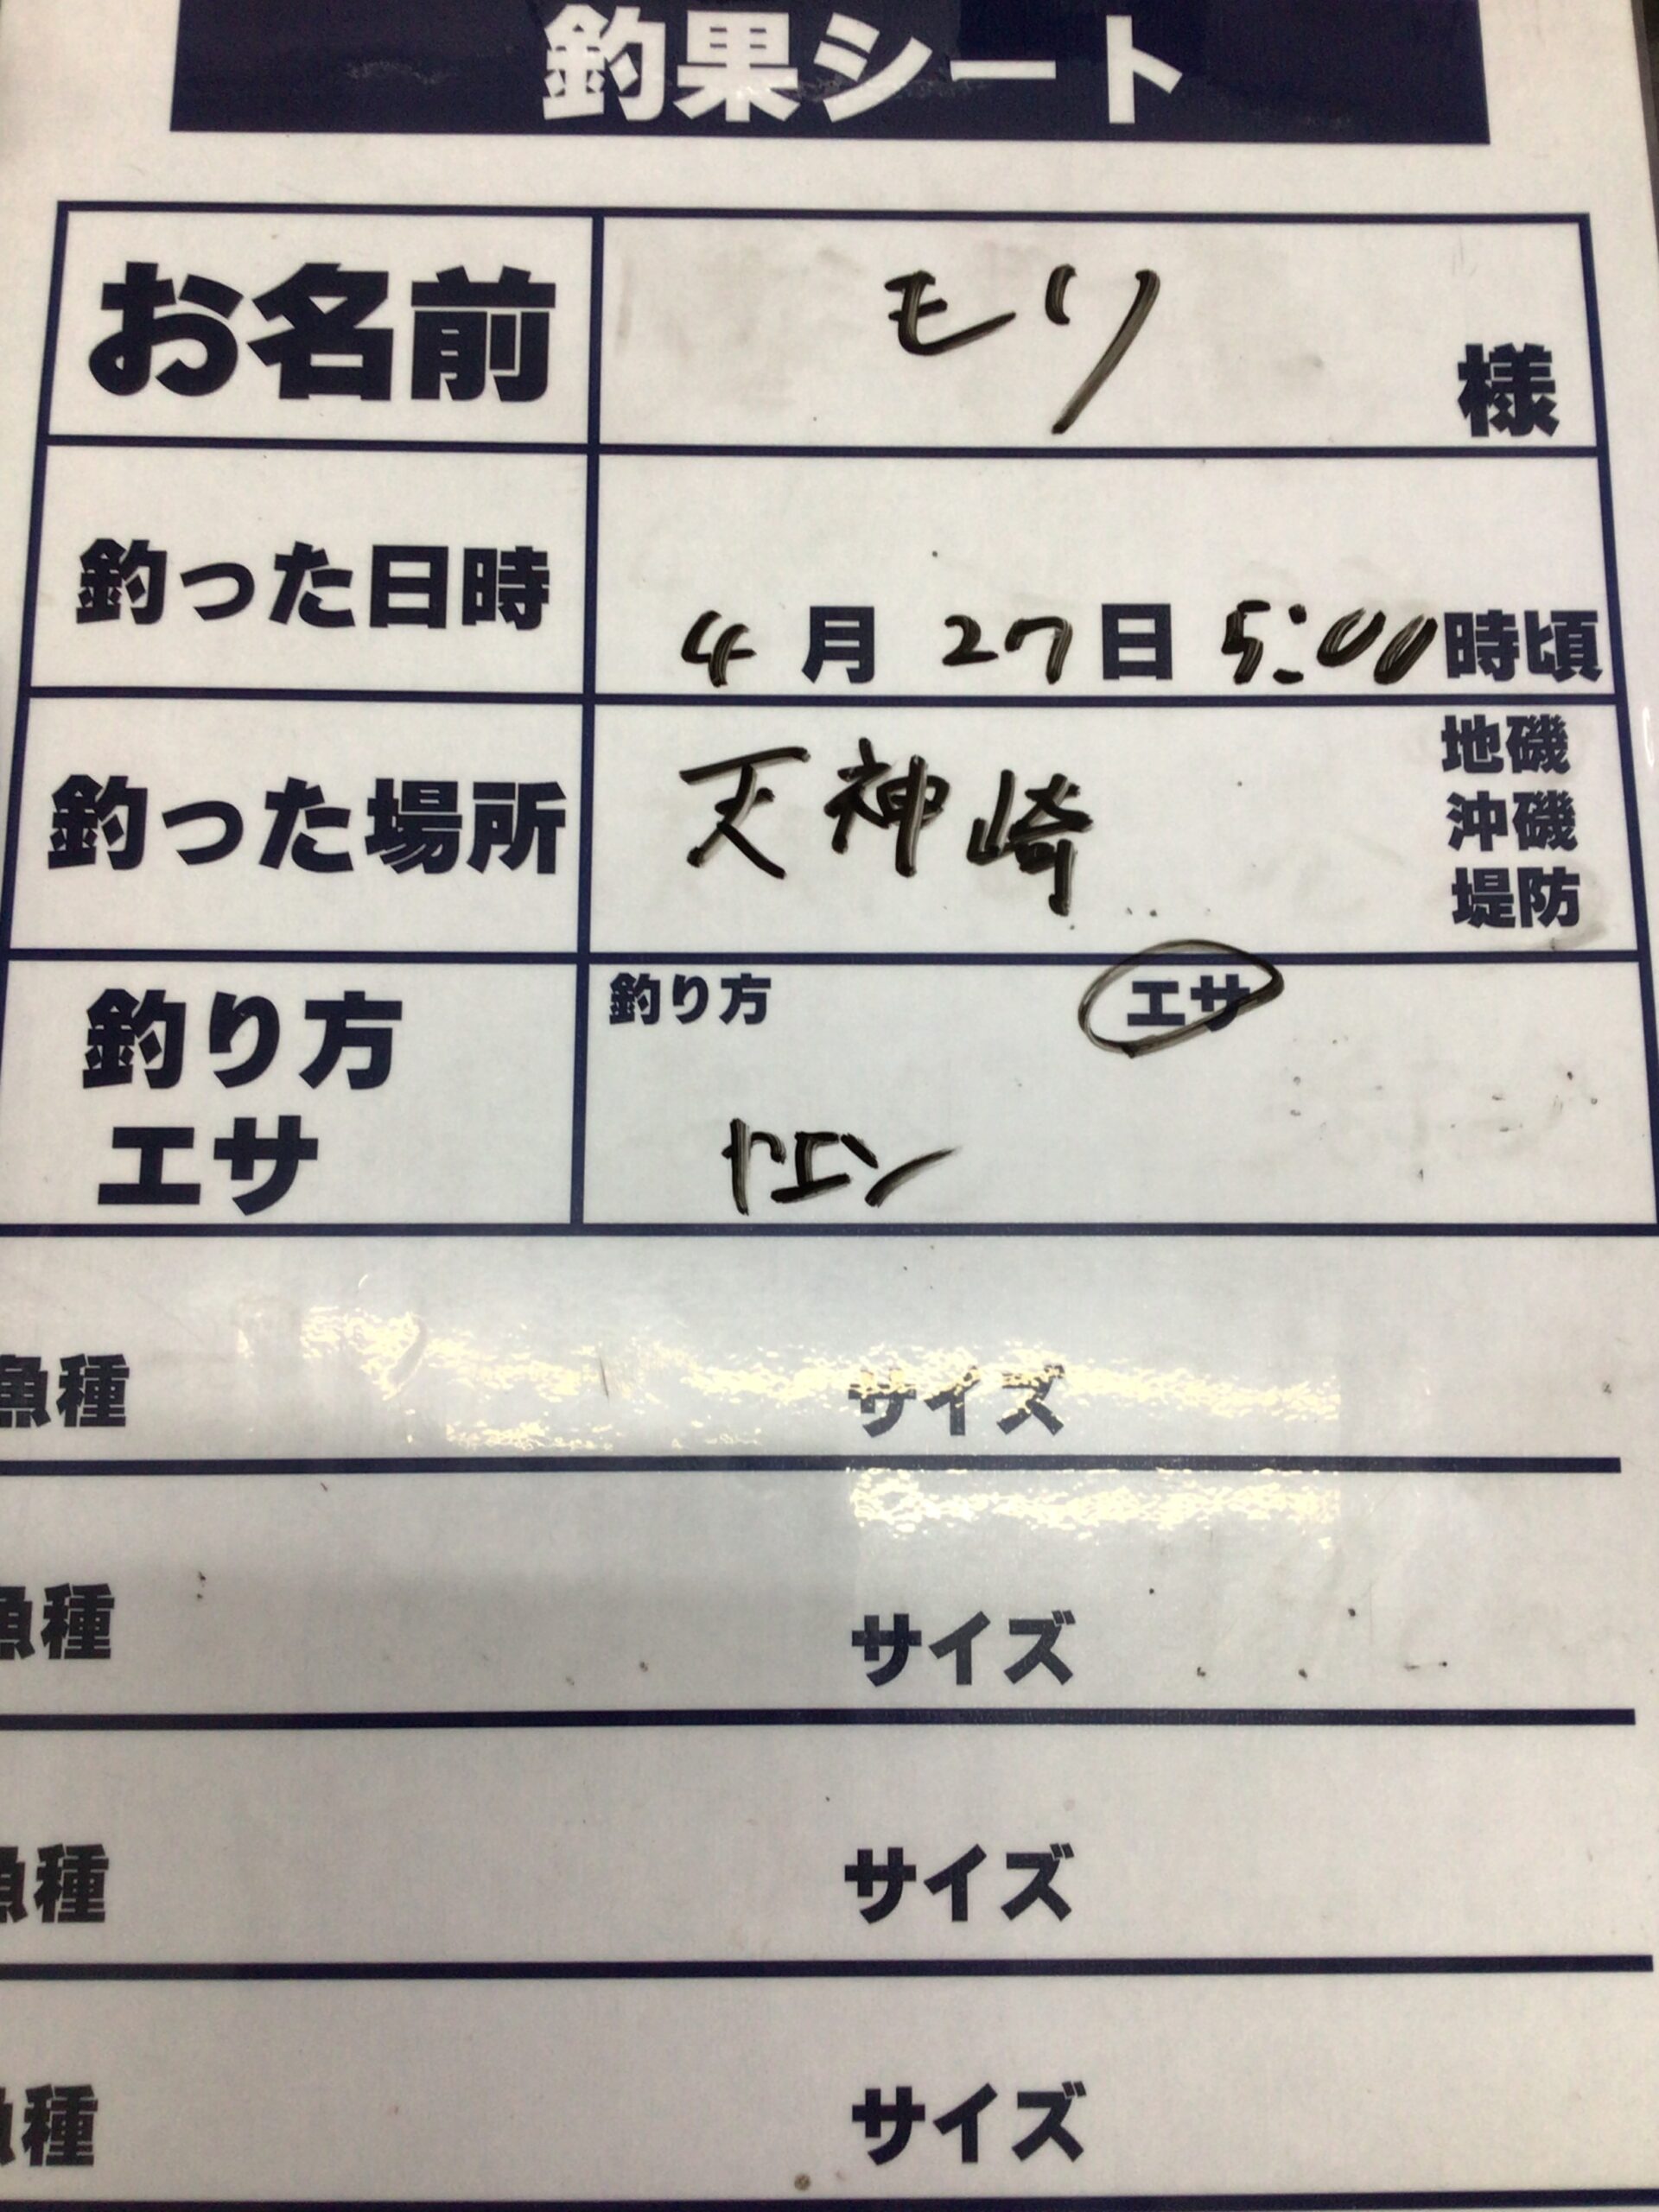 釣果シート
お名前 モリ 様
釣った日時 4月27日 5:00時頃
釣った場所 天神崎 地磯
沖磯
堤防
釣り方 エサ
釣り方
エサ
ヤエン
魚種 サイズ
魚種 サイズ
魚種 サイズ
魚種 サイズ